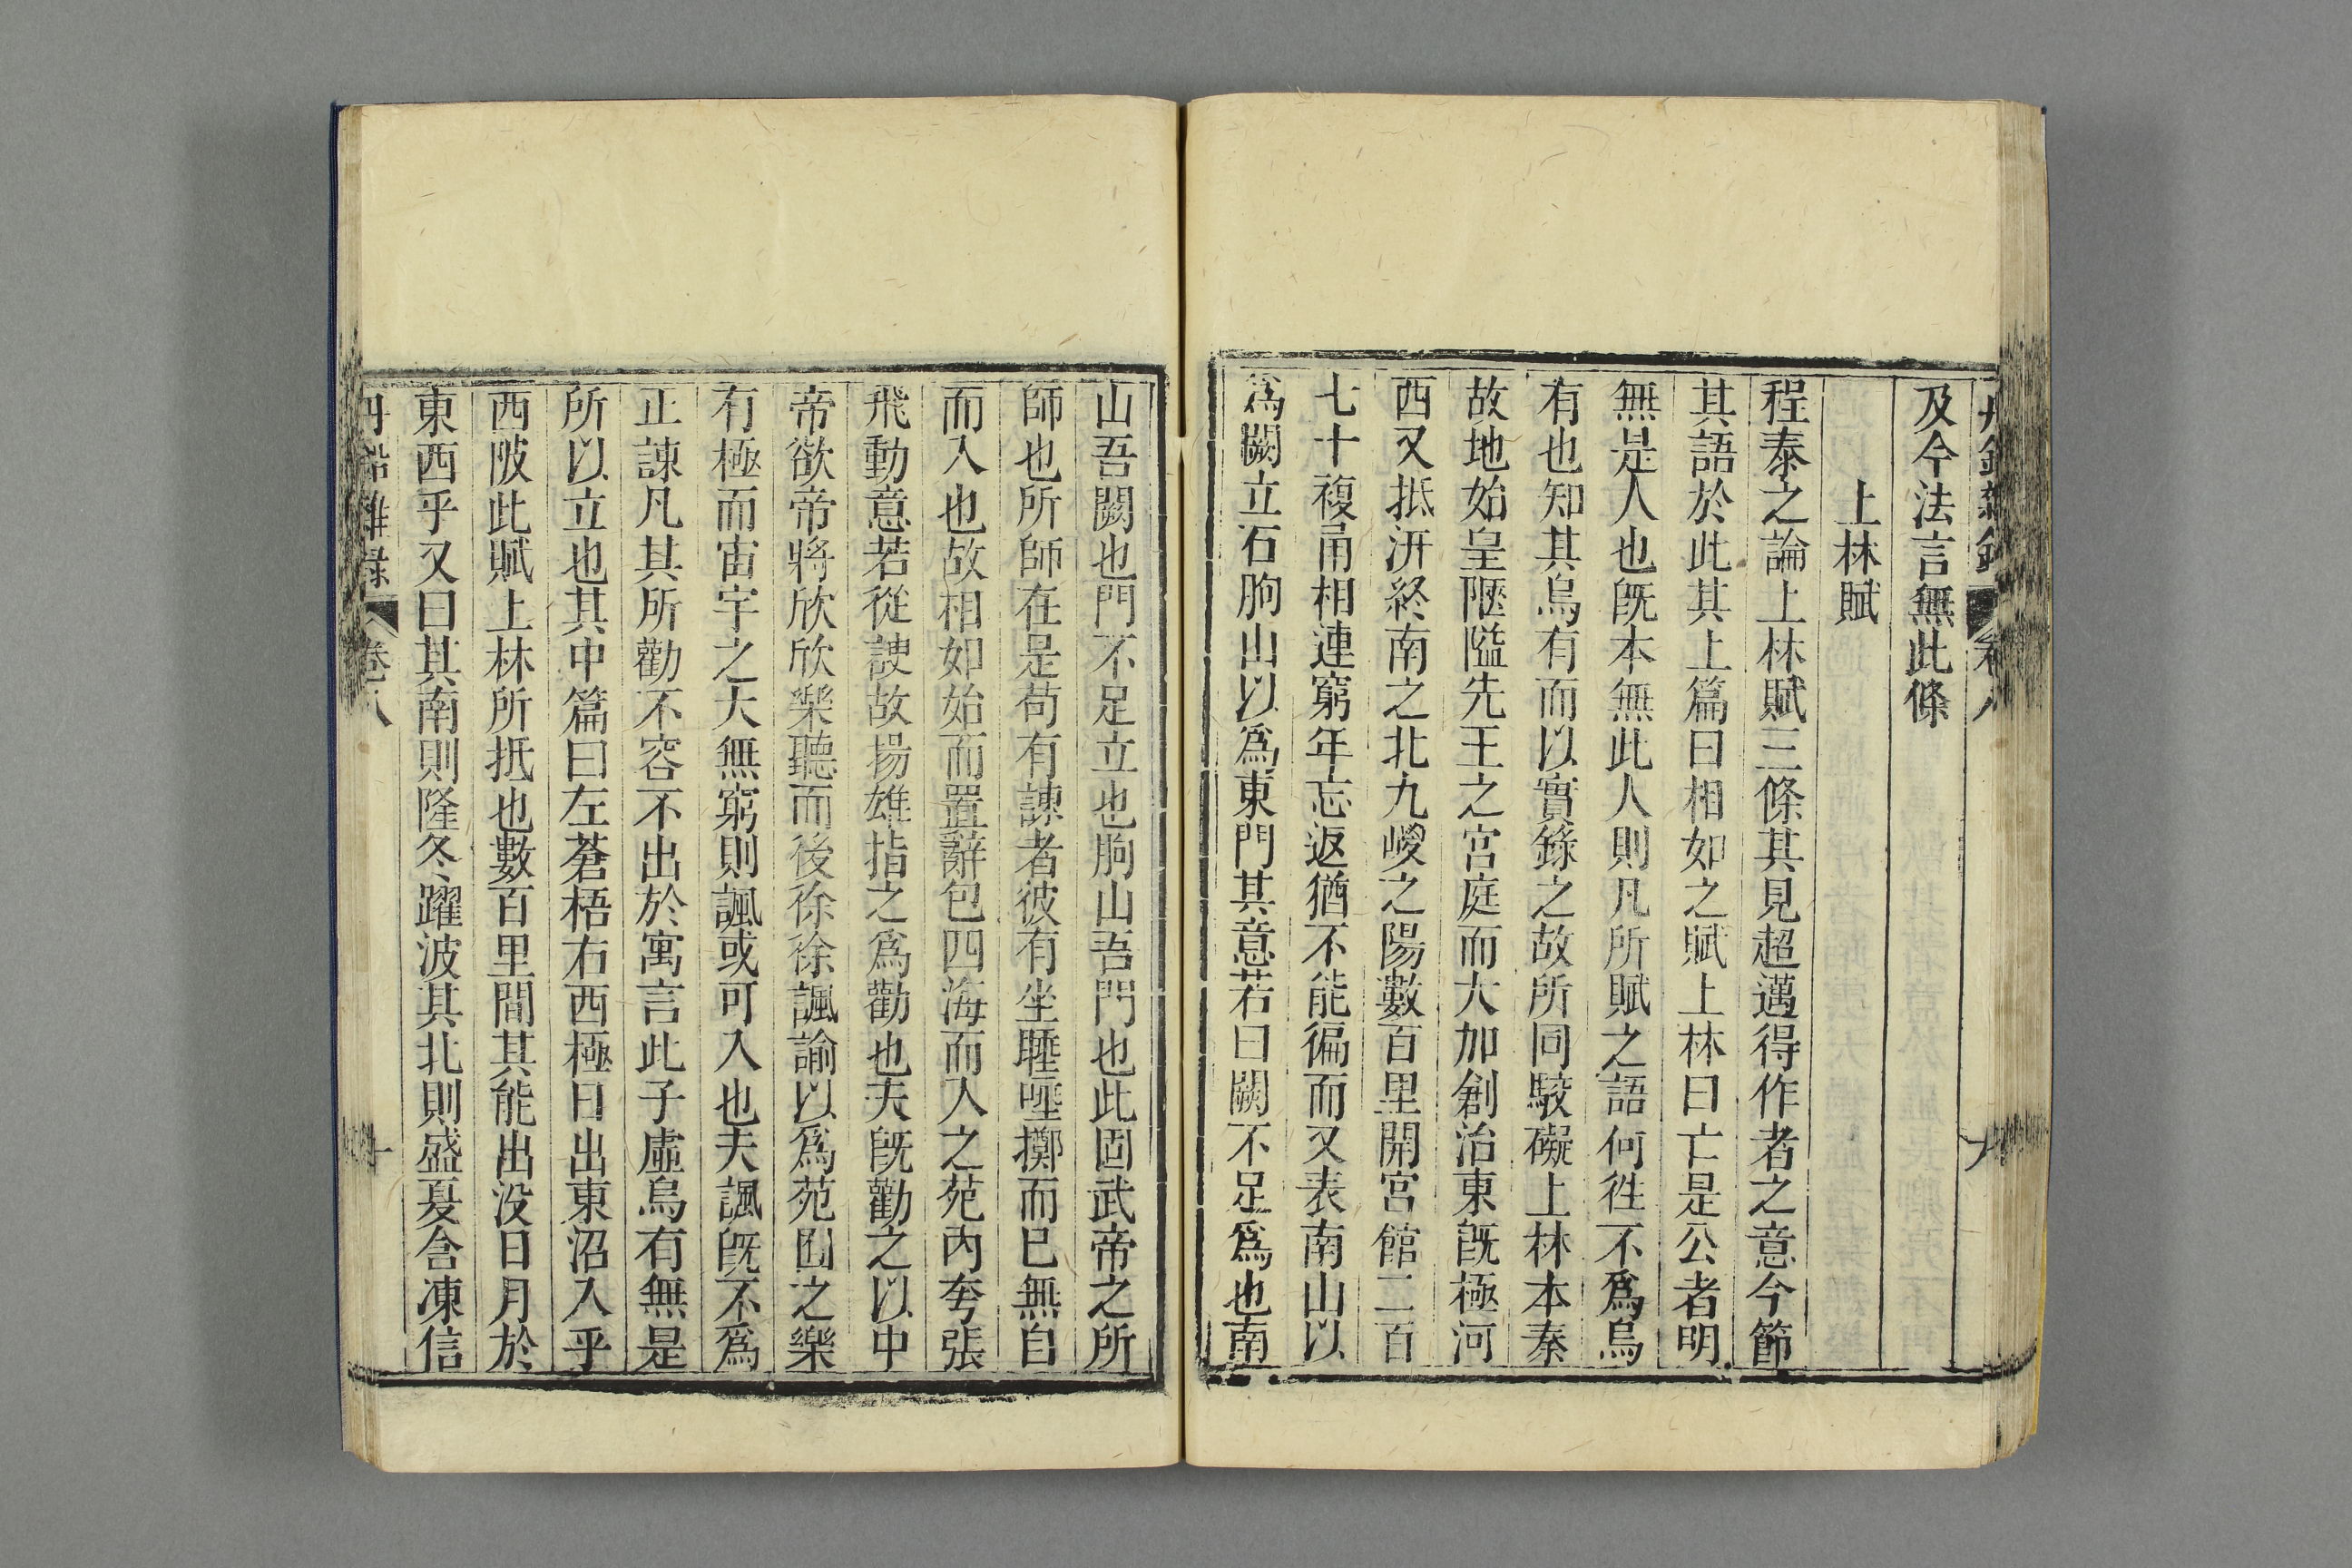 及今法言無此條
上林賦
程泰之論上林賦三條其見超邁得作者之意今節
其語於此其上篇曰相如之賦上林曰亡是公者明
無是人也既本無此人則凡所賦之語何徃不為烏
有也知其烏有而以實錄之故所同駮礙上林本秦
故地始皇陿隘先王之宫庭而大加創治東既極河
西又抵汧終南之北九嵕之陽數百里開宮館二百
七十複甬相連窮年忘返猶不能徧而又表南山以
為闕立石朐山以為東門其意若曰闕不足為也南
山吾闕也門不足立也朐山吾門也此固武帝之所
師也所師在是苟有諫者彼有坐睡唾擲而已無自
而入也故相如始而置辭包四海而入之苑內夸張
飛動意若從諛故揚雄指之為勸也夫既勸之以中
帝欲帝將欣欣樂聽而後徐徐諷諭以為苑囿之樂
有極而宙宇之大無窮則諷或可入也夫諷既不為
正諫凡其所勸不容不出於寓言此子虛烏有無是
所以立也其中篇曰左蒼梧右西極日出東沼入乎
西陂此賦上林所抵也數百里間其能出没日月於
東西乎又曰其南則隆冬躍波其北則盛夏含凍信